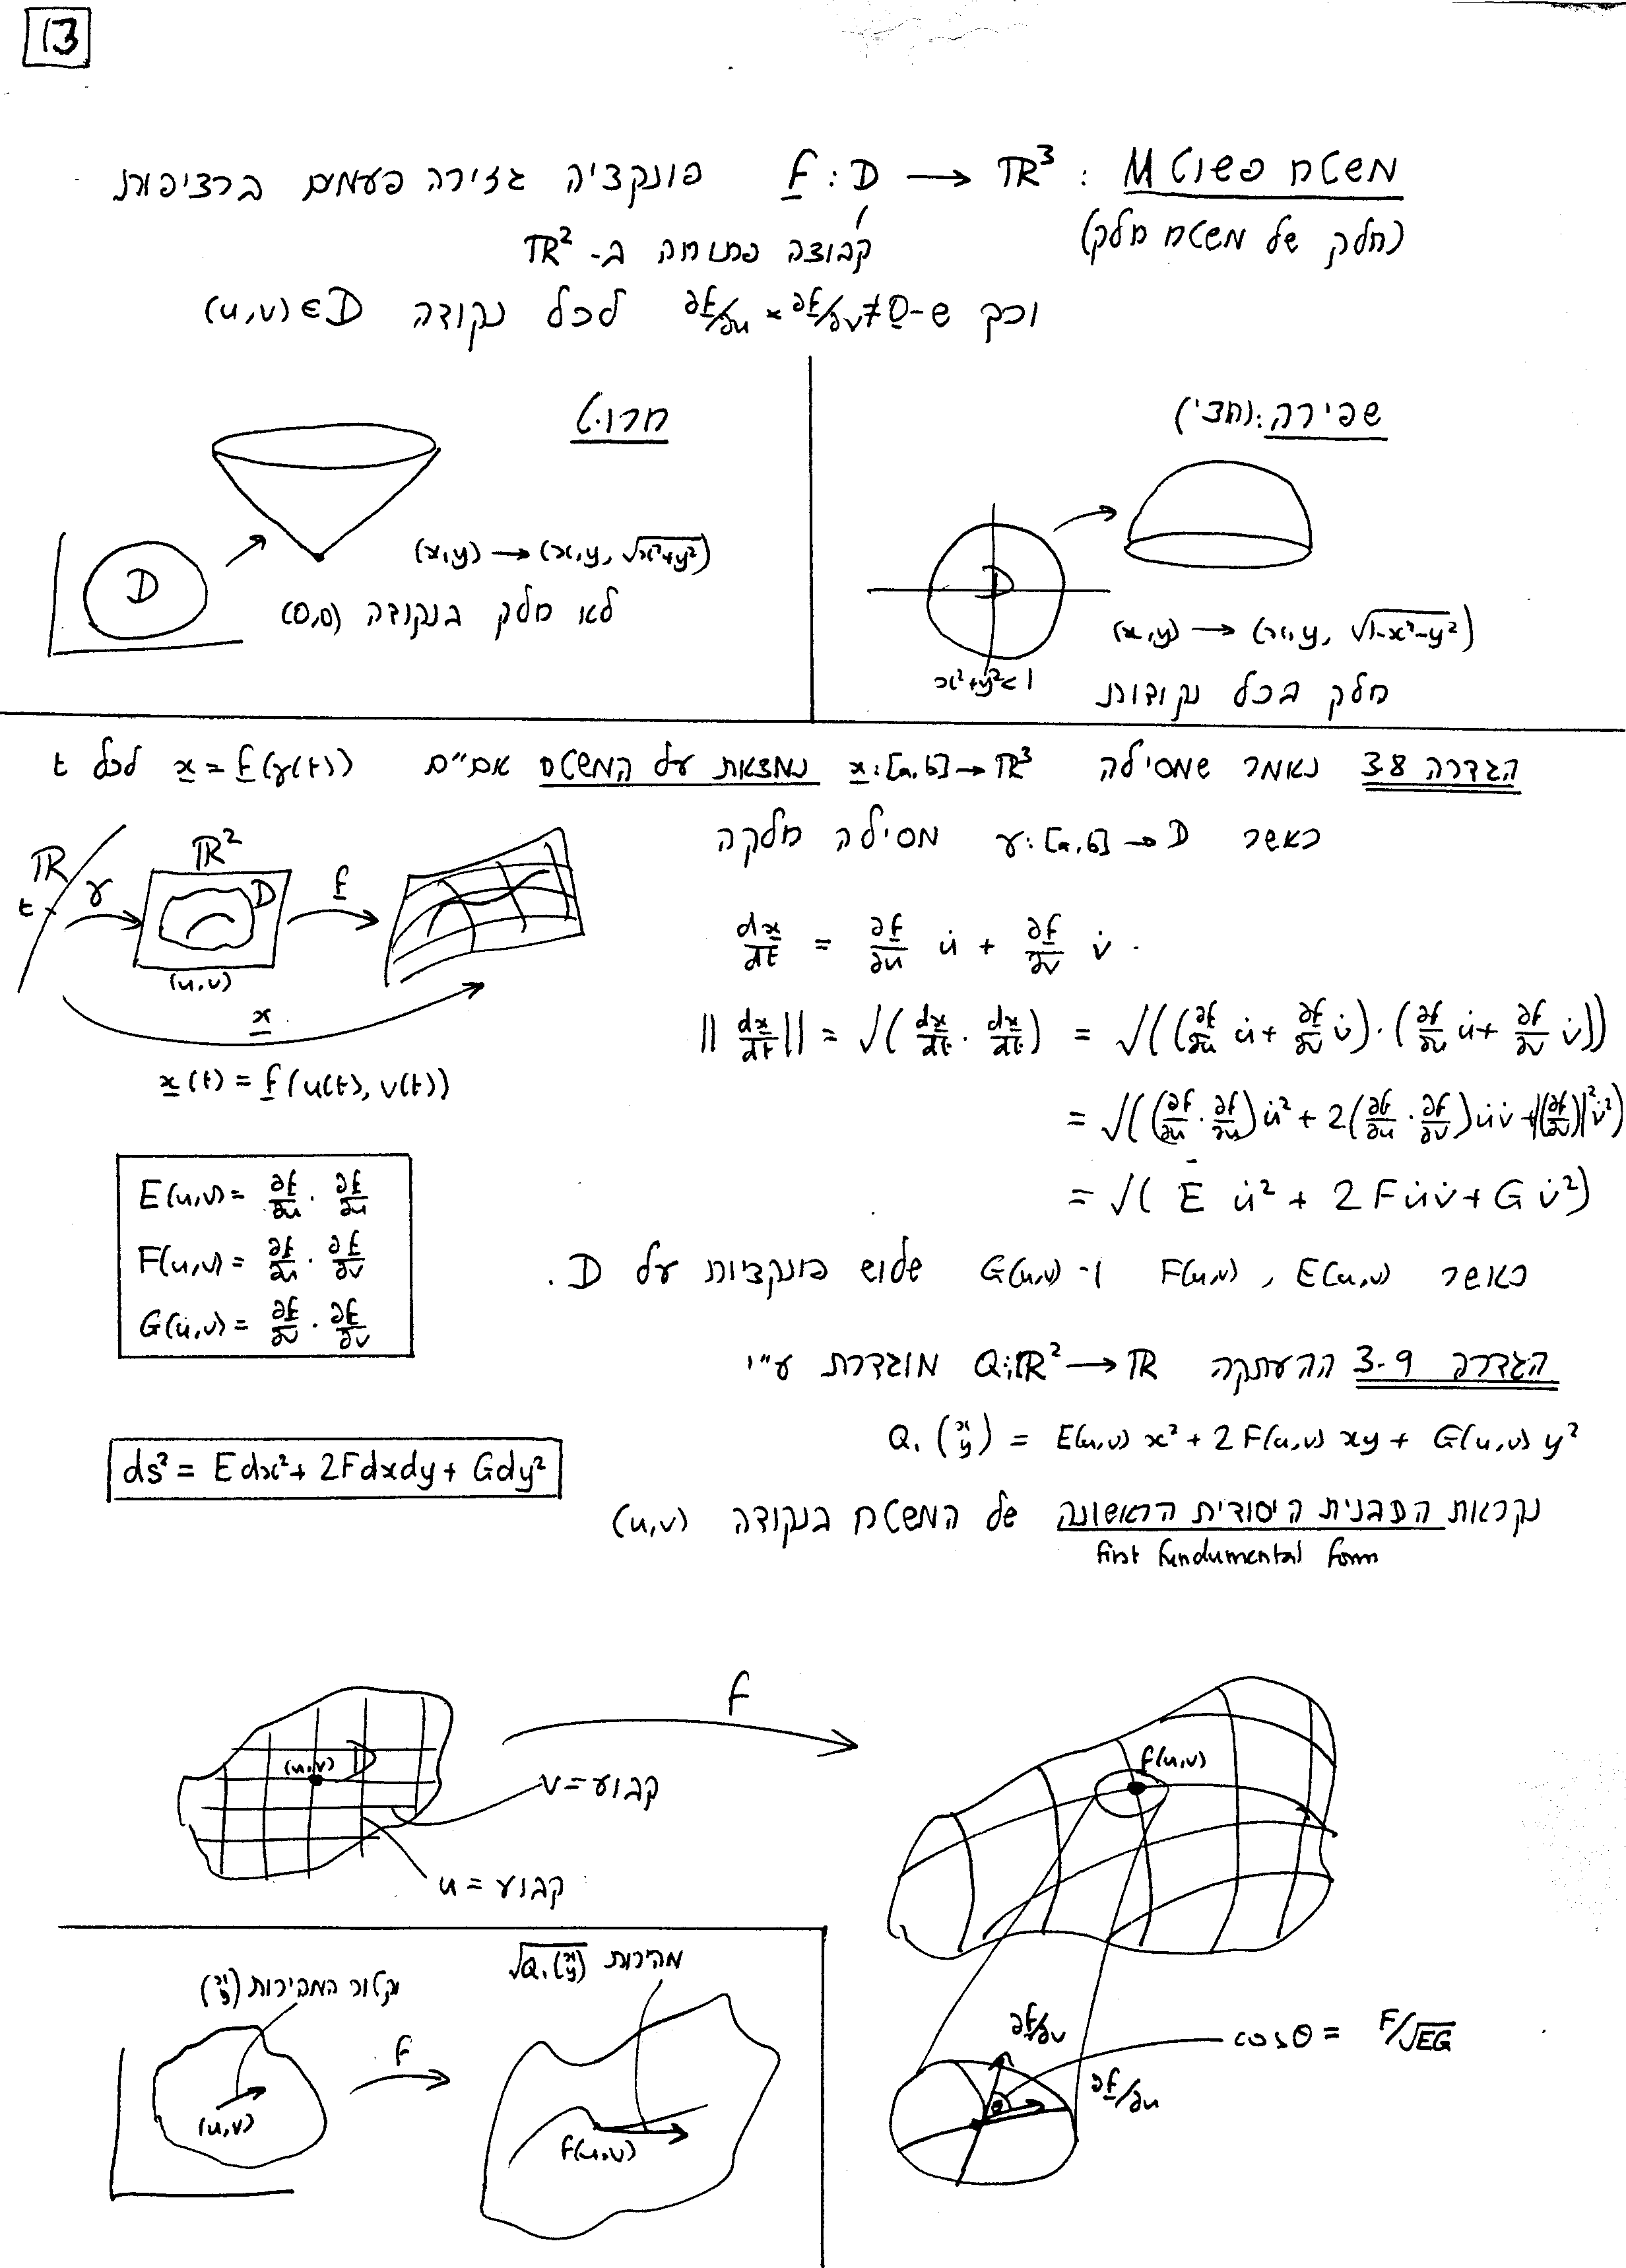 13
משטח פשוט M : f : D → ℝ³ פונקציה גזירה פעמים ברציפות
(חלק של משטח חלק)
קבוצה פתוחה ב- ℝ²
וכך ש- ∂f/∂u × ∂f/∂v ≠ 0 לכל נקודה (u,v) ∈ D
שפירה: (חצי)
D
x²+y²<1
(x,y) → (x,y, √1-x²-y²)
חלק בכל נקודות
חרוט
D
(x,y) → (x,y, √x²+y²)
לא חלק בנקודה (0,0)
הגדרה 3.8 נאמר שמסילה x:[a,b] → ℝ³ נמצאת על המשטח אם"ם x = f(γ(t)) לכל t
כאשר γ:[a,b] → D מסילה חלקה
ℝ t γ ℝ² D (u,v) f
x
x(t) = f(u(t), v(t))
dx/dt = ∂f/∂u u̇ + ∂f/∂v v̇ .
||dx/dt|| = √(dx/dt · dx/dt) = √((∂f/∂u u̇ + ∂f/∂v v̇)·(∂f/∂u u̇ + ∂f/∂v v̇))
= √((∂f/∂u · ∂f/∂u) u̇² + 2(∂f/∂u · ∂f/∂v) u̇v̇ + |(∂f/∂v)|² v̇²)
= √( E u̇² + 2Fu̇v̇ + G v̇²)
E(u,v) = ∂f/∂u · ∂f/∂u
F(u,v) = ∂f/∂u · ∂f/∂v
G(u,v) = ∂f/∂v · ∂f/∂v
כאשר E(u,v) , F(u,v) ו- G(u,v) שלוש פונקציות על D.
הגדרה 3.9 ההעתקה Q₁:ℝ² → ℝ מוגדרת ע"י
Q₁ (x y) = E(u,v) x² + 2F(u,v) xy + G(u,v) y²
ds² = Edx² + 2Fdxdy + Gdy²
נקראת התבנית היסודית הראשונה של המשטח בנקודה (u,v)
first fundumental form
f
(u,v) D
v = קבוע
u = קבוע
f(u,v)
וקטור המהירות (x y)
(u,v)
f
מהירות √Q₁(x y)
f(u,v)
∂f/∂v
∂f/∂u
θ
cosθ = F/√EG